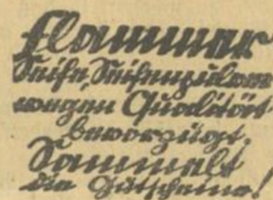 Flammer
Seife, Seifenpulver
wegen Qualität
bevorzugt.
Sammelt
die Gutscheine!